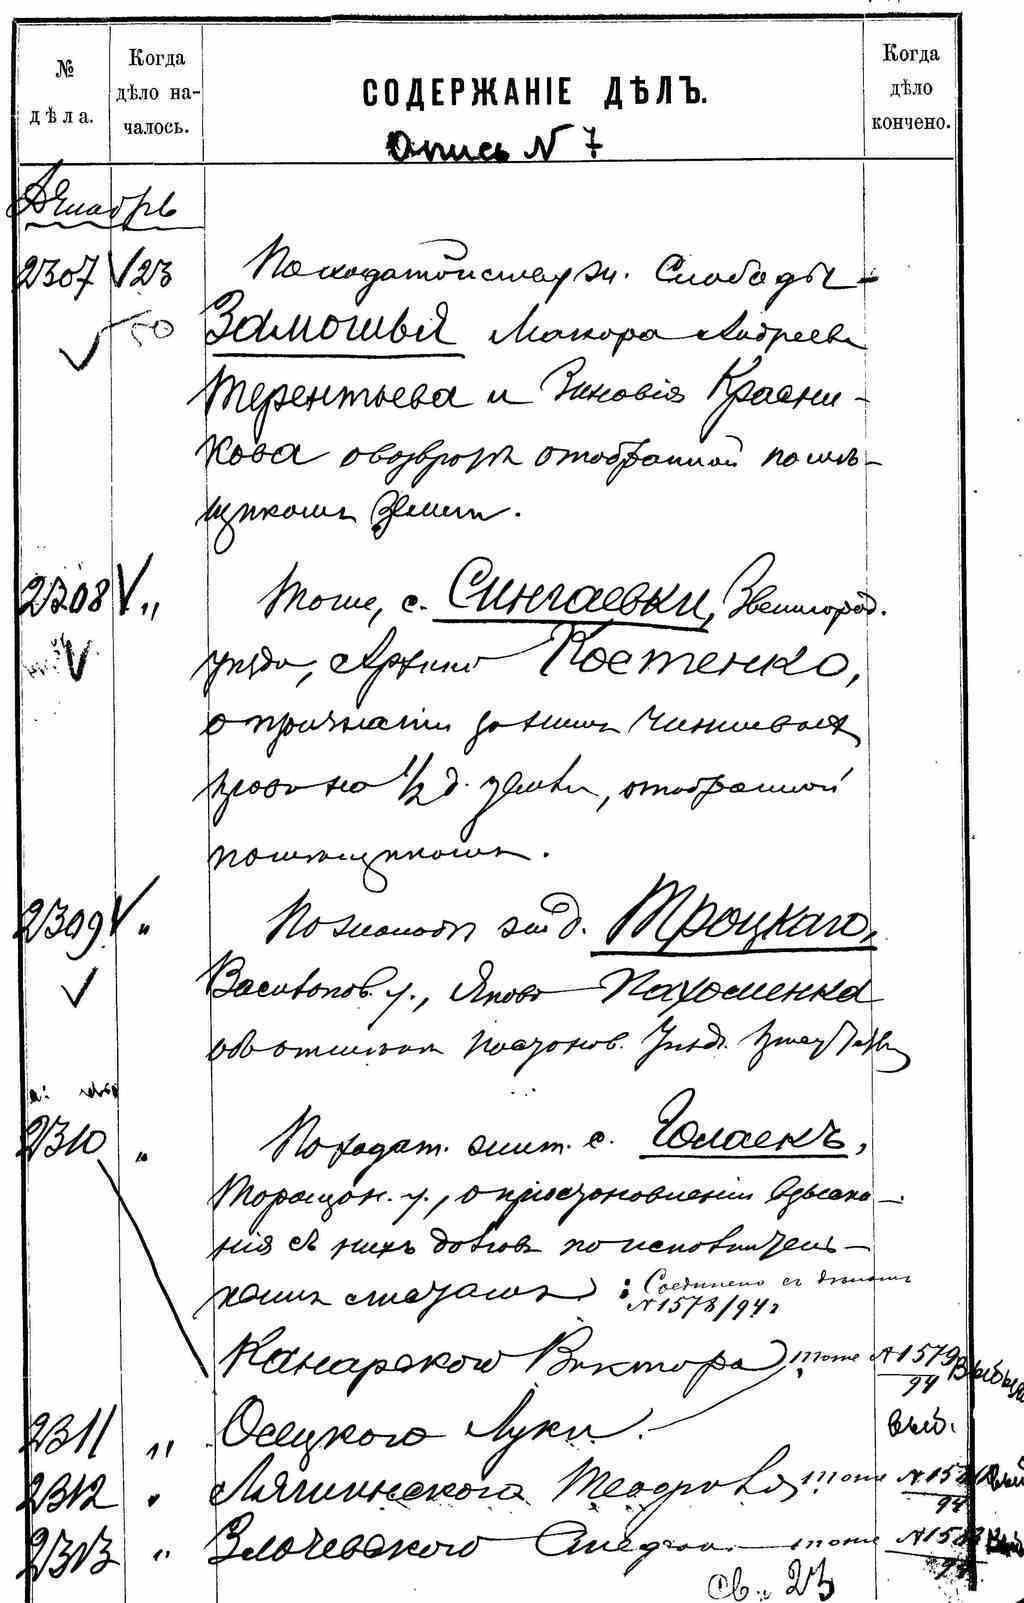 № дѣла.
Когда дѣло на-чалось.
СОДЕРЖАНІЕ ДѢЛЪ.
Когда дѣло кончено.
Опись N 7
Декабрь
2307 23 По ходатайству жи. Слободы
50 Замошья Макара Андреева
Терентьева и Зиновія Красни-
кова о возвратѣ отобранной помѣ-
щикомъ земли.
2308 " Тоже, с. Сингаевки, Звенигород.
уѣзда, Костенко,
о признаніи за нимъ чиншеваго
права на 1/2 д. земли, отобранной
помѣщикомъ.
2309 " По жалобѣ Троцкаго,
Васильков. у., Якова Пахоменка
объ отмѣнѣ постанов. Уѣзд.
2310 " По ходат. жит. с. Голаекъ,
Таращан. у., о пріостановленіи взыска-
нія съ нихъ долговъ по исполнитель-
нымъ листамъ : Соединено съ дѣломъ
N 1578/94 г
Канарского Виктора тоже N 1579/94
2311 " Осецкого Луки. выб.
2312 " Теодора тоже N 15 /94 выб
2313 " Злочевского тоже N 15 /94
Св. 23